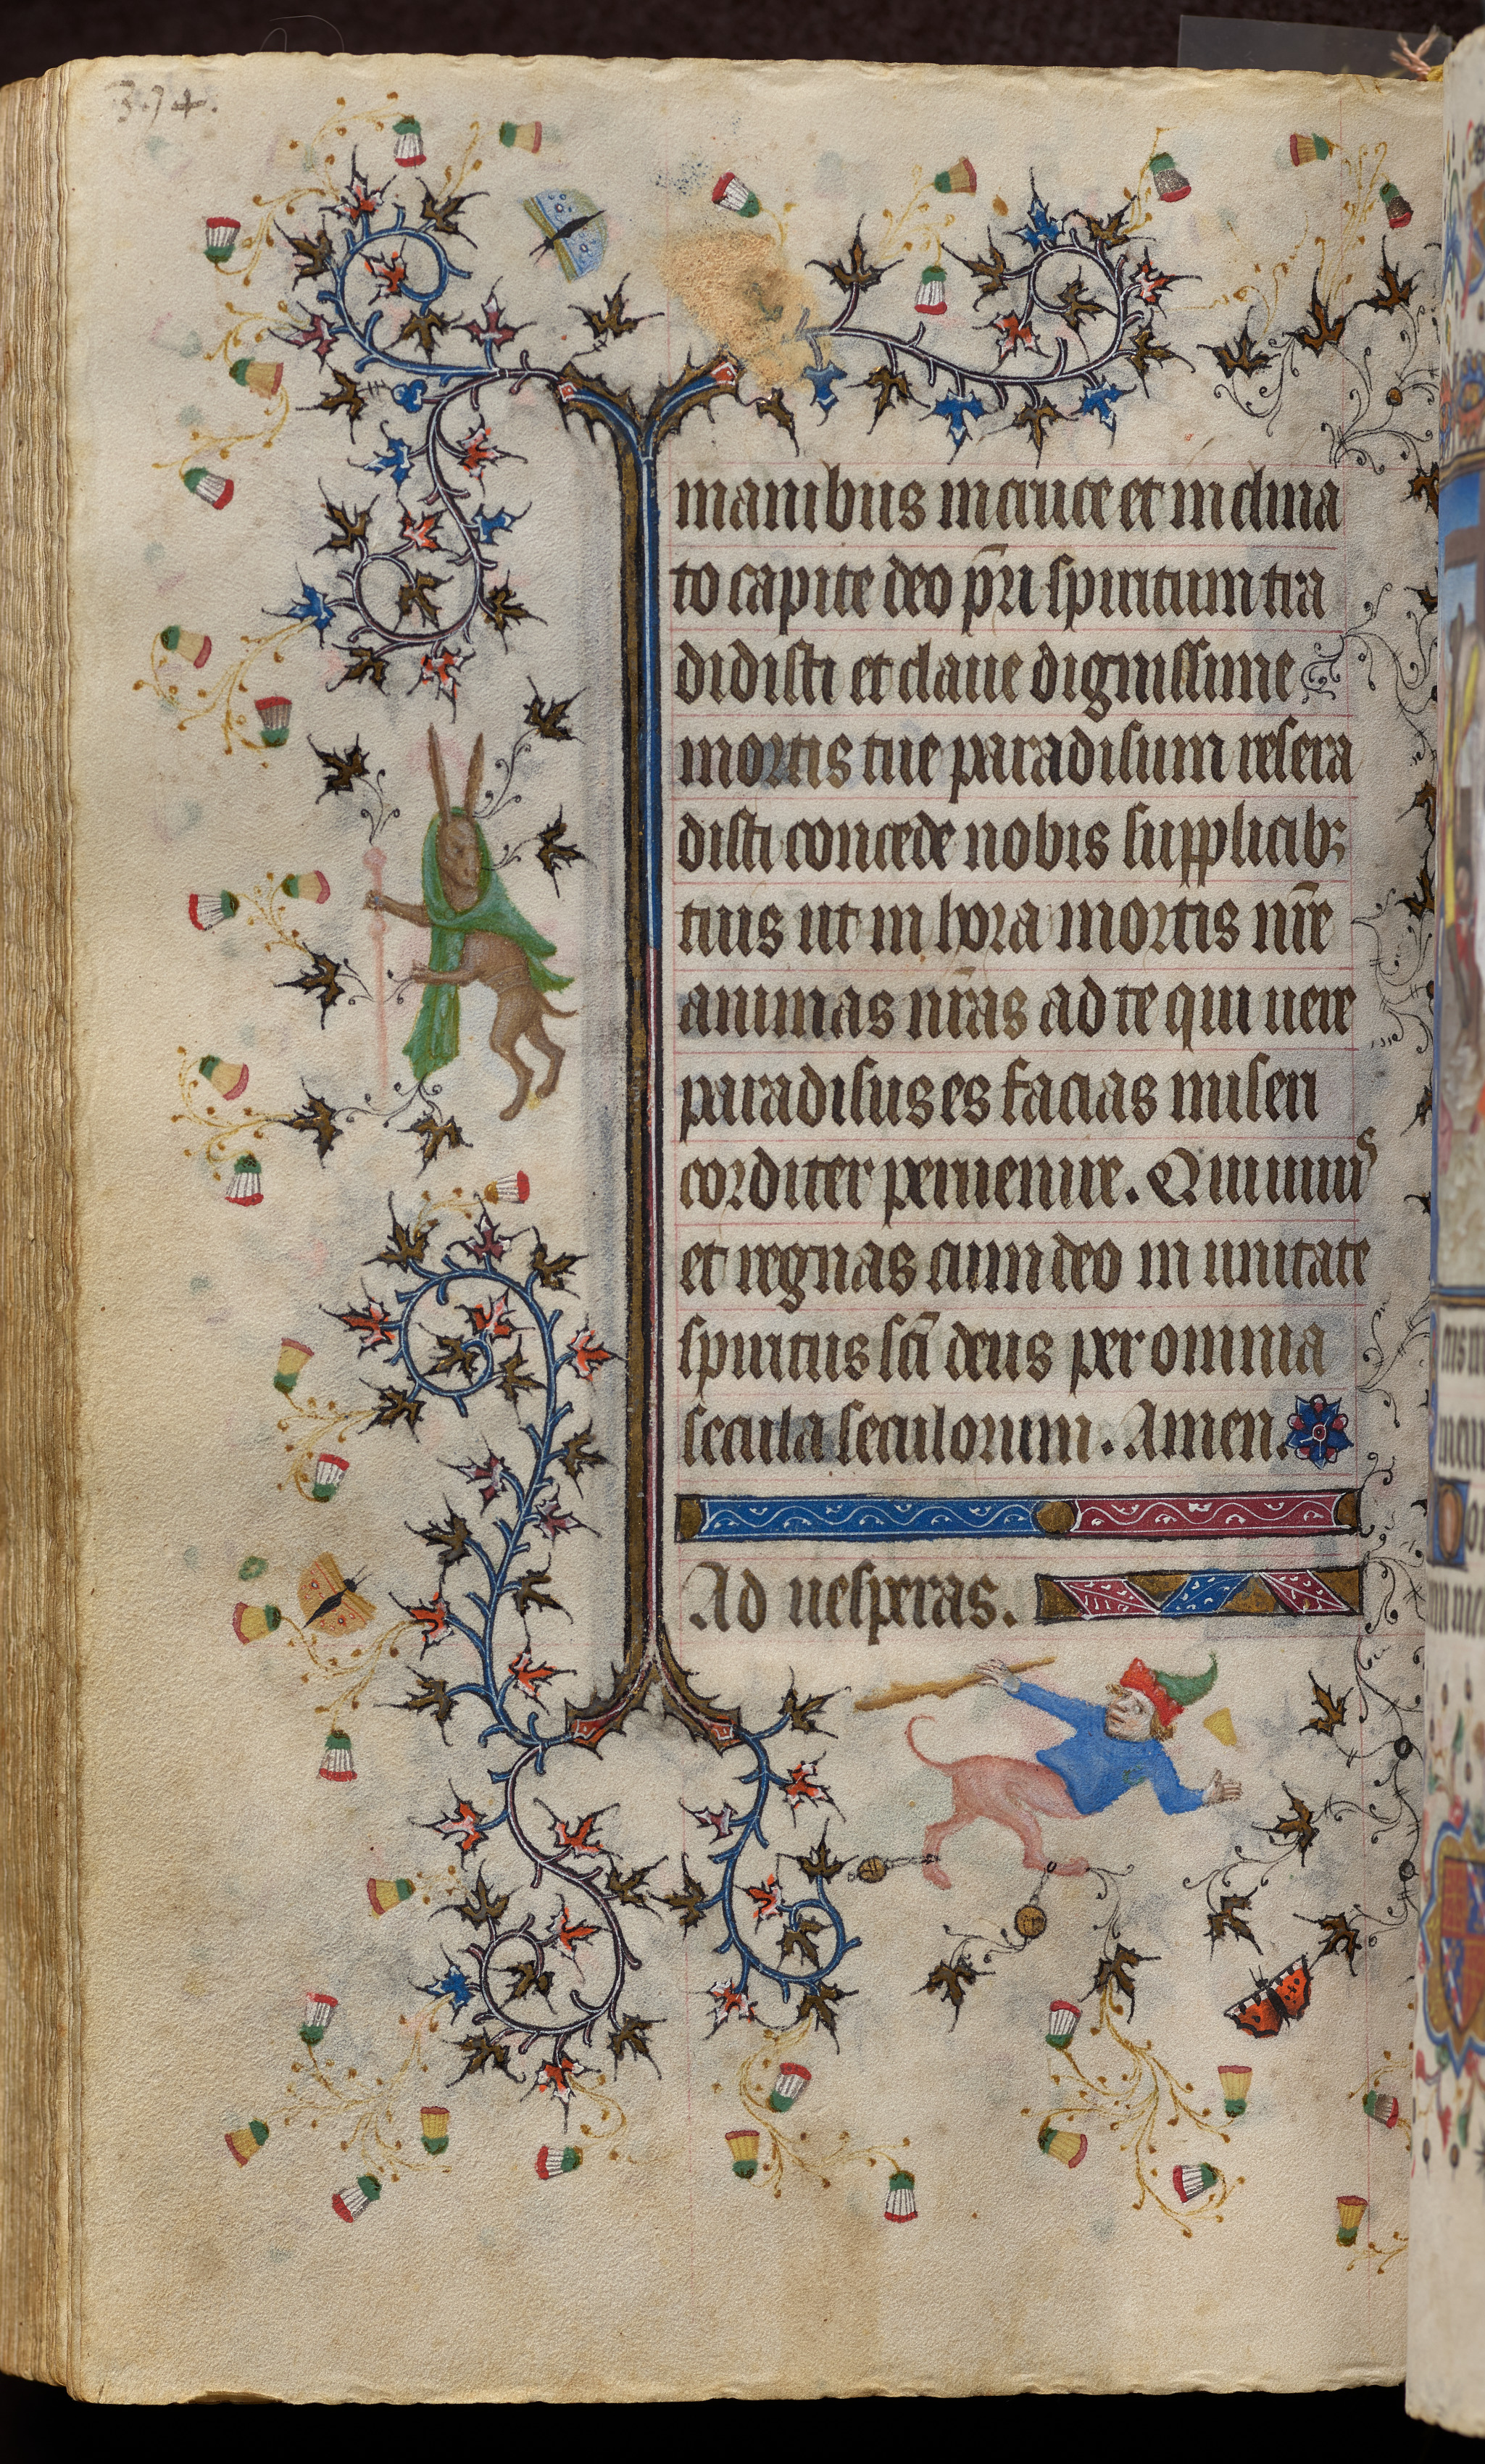 374.
manibus in cruce et inclina
to capite deo pr̄i spiritum tra
didisti et claue dignissime
mortis tue paradisum resera
disti concede nobis supplicibꝫ
tuis ut in hora mortis nr̄e
animas nr̄as ad te qui uere
paradisus es facias miseri
corditer peruenire. Qui uiuis
et regnas cum deo in unitate
spiritus sc̄i deus per omnia
secula seculorum. Amen.
Ad uesperas.